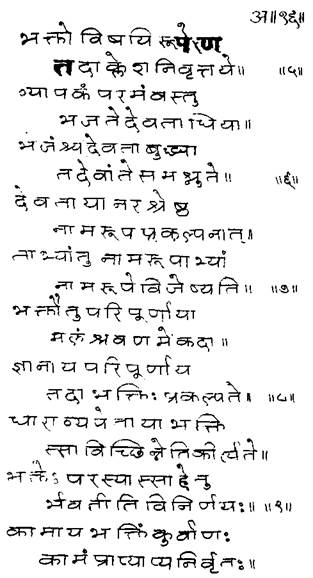 अ॥१६॥
भक्तो विषयिरूपेण
तदा क्लेशनिवृत्तये॥ ॥५॥
व्यापकं परमं वस्तु
भजते देवताधिया॥
भजंश्च देवताबुद्ध्या
तदेवांते समश्नुते॥ ॥६॥
देवताया नरश्रेष्ठ
नामरूपप्रकल्पनात्॥
ताभ्यांतु नामरूपाभ्यां
नामरूपे विजेष्यति॥ ॥७॥
भक्तौतु परिपूर्णाया
मलं श्रवणमेकदा॥
ज्ञानाय परिपूर्णाय
तदा भक्तिः प्रकल्पते॥ ॥८॥
धारा
या भक्ति
स्सा विच्छिन्नेति कीर्त्यते॥
भक्तेः परस्यास्सा हेतु
र्भवतीति विनिर्णयः॥ ॥९॥
कामाय भक्तिं कुर्वाणः
कामं प्राप्याप्यनिर्वृतः॥